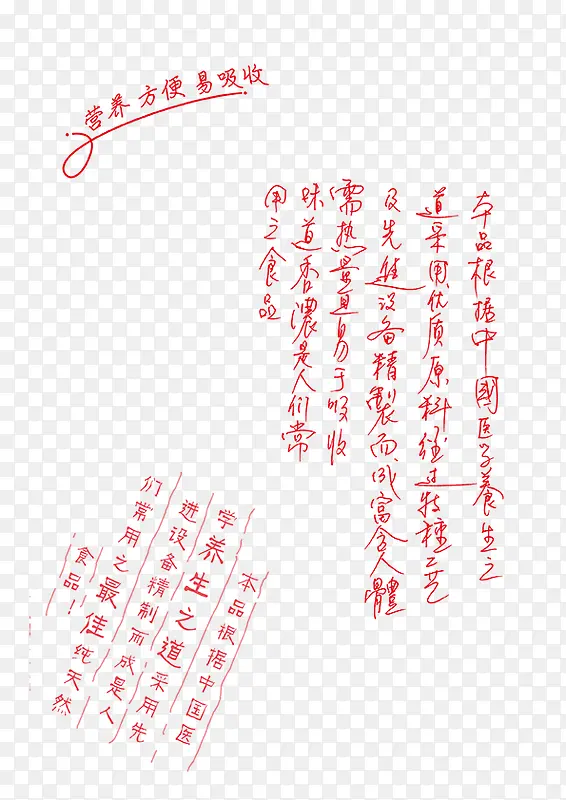 营养 方便 易吸收
本品根据中國医学養生之
道采用优质原料经过特種工艺
及先进设备精製而成富含人體
需热量且易于吸收
味道香濃是人们常
用之食品
本品根据中国医
学养生之道采用先
进设备精制而成是人
们常用之最佳纯天然
食品！